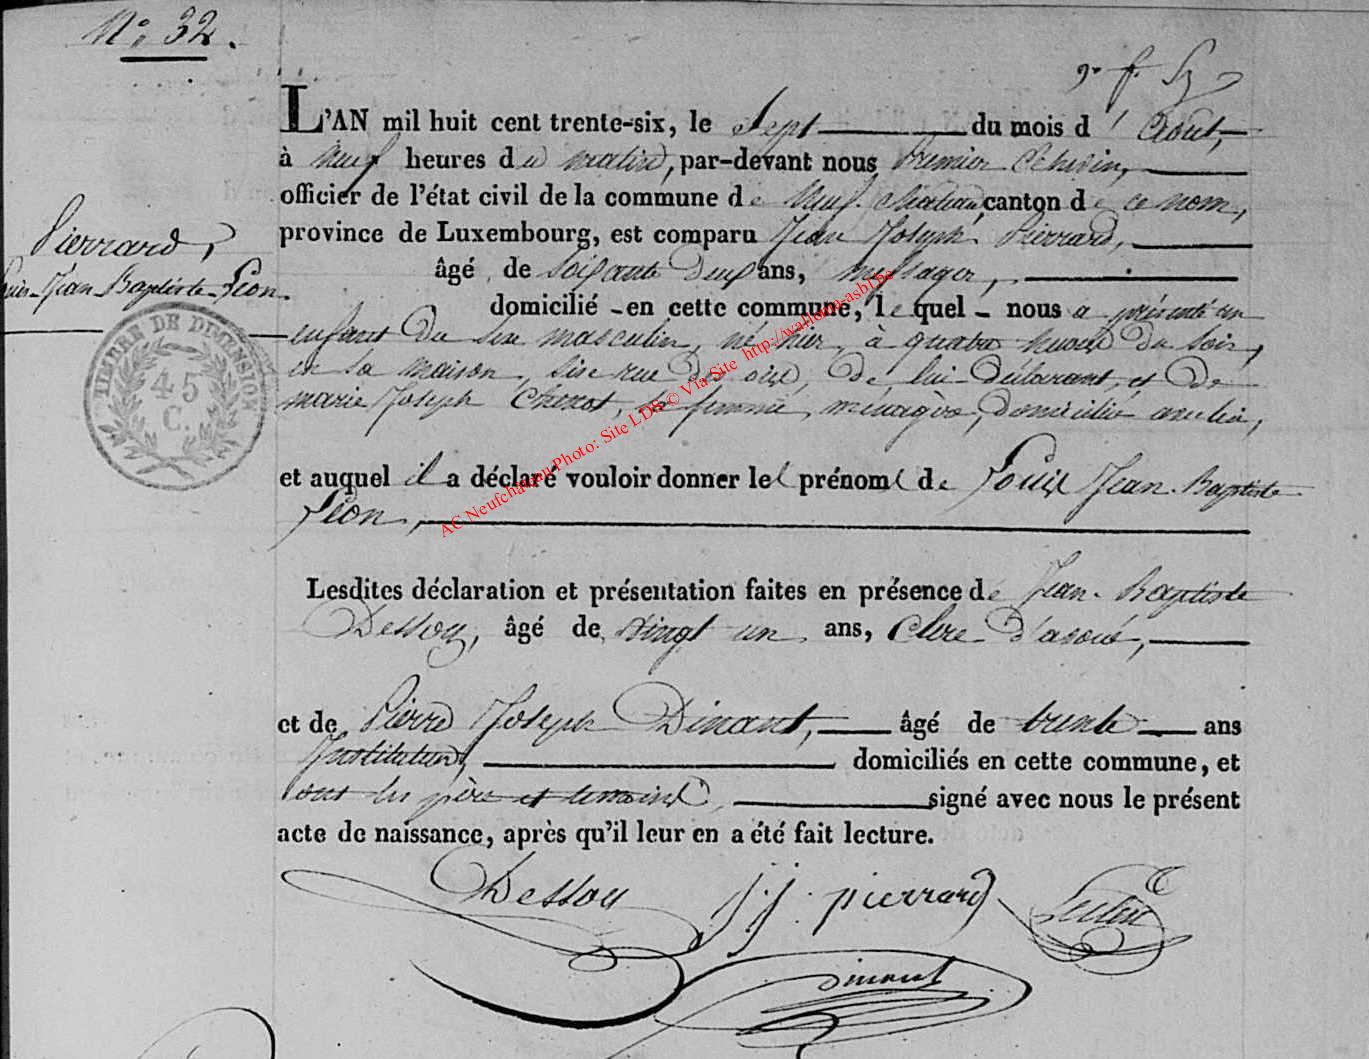 N° 32.
L'AN mil huit cent trente-six, le Sept du mois d'Août,
à Neuf heures du matin, par-devant nous Premier Echevin,
officier de l'état civil de la commune de Neufchateau, canton de ce nom,
province de Luxembourg, est comparu Jean Joseph Pierrard,
âgé de soixante deux ans, messager,
domicilié en cette commune, lequel nous a présenté un
enfant du sexe masculin, né hier, à quatre heures du soir,
en sa maison, sise rue de lui déclarant, et de
marie Joseph Chenot, sa femme, ménagère, domiciliée avec lui,
et auquel il a déclaré vouloir donner les prénoms de Louis Jean-Baptiste
Léon,
Lesdites déclaration et présentation faites en présence de Jean-Baptiste
Dessoy, âgé de vingt un ans, Clerc d'avoué,
et de Pierre Joseph Dinant, âgé de trente ans
Instituteur, domiciliés en cette commune, et
ont les père et témoins, signé avec nous le présent
acte de naissance, après qu'il leur en a été fait lecture.
Dessoy J. J. pierrard
Dinant
Pierrard,
Louis-Jean-Baptiste-Léon.
TIMBRE DE DIMENSION
45
C.
AC Neufchateau Photo: Site LDB © Via Site http://wallonia-asbl.be